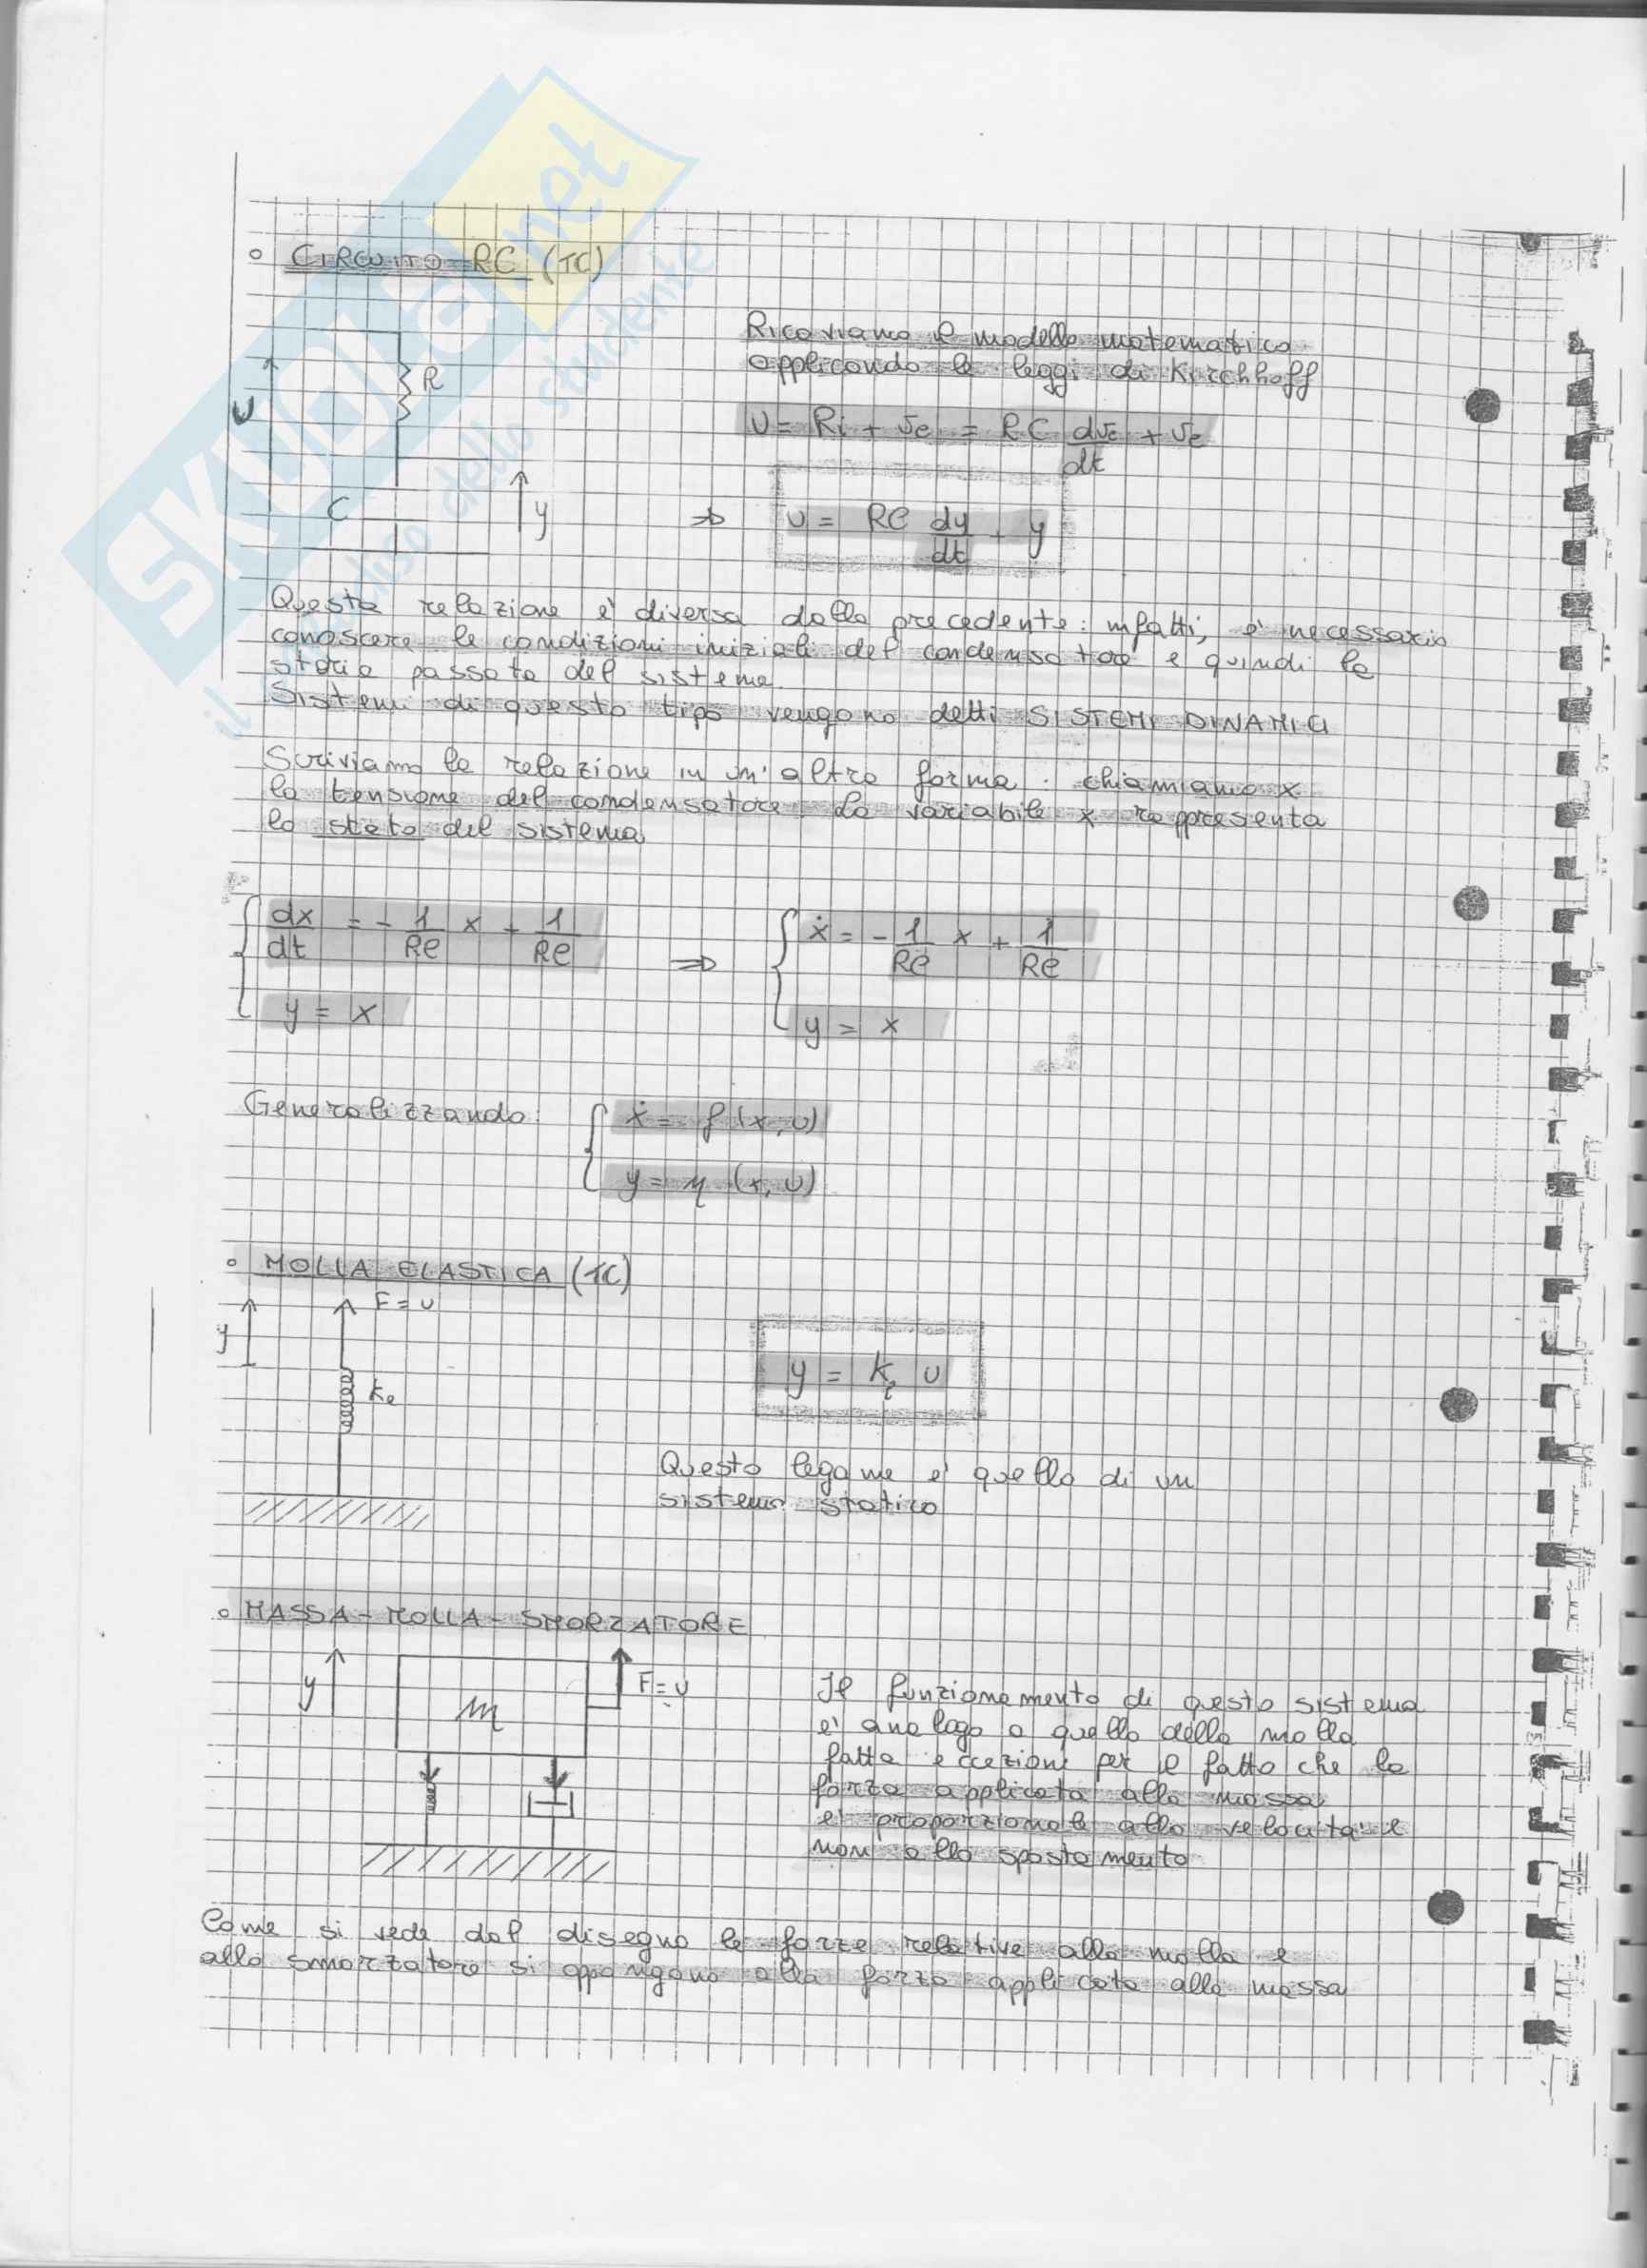 CIRCUITO RC (TC)
Ricaviamo il modello matematico
applicando le leggi di Kirchhoff
R
U
C
y
U = Ri + vc = RC dvc/dt + vc
⇒ U = RC dy/dt + y
Questa relazione è diversa dalla precedente: infatti, è necessario
conoscere le condizioni iniziali del condensatore e quindi la
storia passata del sistema.
Sistemi di questo tipo vengono detti SISTEMI DINAMICI
Scriviamo la relazione in un'altra forma: chiamiamo x
la tensione del condensatore. La variabile x rappresenta
lo stato del sistema
dx/dt = - 1/RC x + 1/RC ⇒ ẋ = - 1/RC x + 1/RC
y = x y = x
Generalizzando: ẋ = f(x, u)
y = η (x, u)
MOLLA ELASTICA (TC)
F = u
y
ke
y = ke u
Questo legame è quello di un
sistema statico
MASSA-MOLLA-SMORZATORE
y
m
F = u
Il funzionamento di questo sistema
è analogo a quello della molla
fatta eccezione per il fatto che la
forza applicata alla massa
è proporzionale alla velocità e
non allo spostamento
Come si vede dal disegno le forze relative alla molla e
allo smorzatore si oppongono alla forza applicata alla massa
SKUOLA.net
il paradiso dello studente